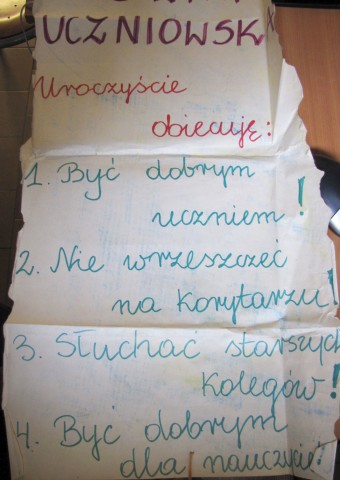 UCZNIOWSKA
Uroczyście
obiecuję:
1. Być dobrym
uczniem!
2. Nie wrzeszczeć
na korytarzu!
3. Słuchać starszych
kolegów!
4. Być dobrym
dla nauczycieli!